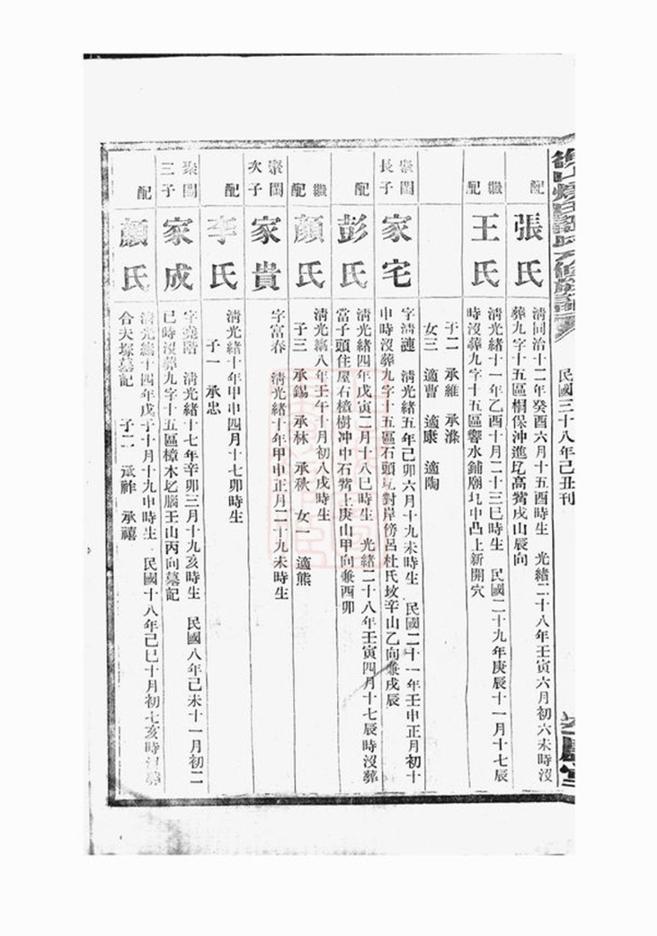 民國三十八年己丑刊
配
張氏
清同治十二年癸酉六月十五酉時生 光緒二十八年壬寅六月初六未時沒
葬九字十五區桐保沖進圪高嘴戌山辰向
繼配
王氏
清光緒十一年乙酉十月二十三巳時生 民國二十九年庚辰十一月十七辰
時沒葬九字十五區響水鋪廟圪中凸上新開穴
子二 承維 承滌
女三 適曹 適康 適陶
長子
家宅
字清漣 清光緒五年己卯六月十九未時生 民國二十一年壬申正月初十
申時沒葬九字十五區石頭圪對岸傍呂杜氏坟辛山乙向兼戌辰
配
彭氏
清光緒四年戊寅二月十八巳時生 光緒二十八年壬寅四月十七辰時沒葬
當子頭住屋右樟樹沖中石嘴上庚山甲向兼酉卯
繼配
顏氏
清光緒八年壬午十月初八戌時生
子三 承錫 承林 承秋 女一 適熊
次子
家貴
字富春 清光緒十年甲申正月二十九未時生
配
李氏
清光緒十年甲申四月十七卯時生
子一 承忠
三子
家成
清光緒十七年辛卯三月十九亥時生 民國八年己未十一月初二
巳時沒葬九字十五區樟木圪腦壬山丙向墓記
配
顏氏
清光緒十四年戊子十月十九申時生 民國十八年己巳十月初七亥時沒葬
合夫塚墓記 子二 承祚 承禧